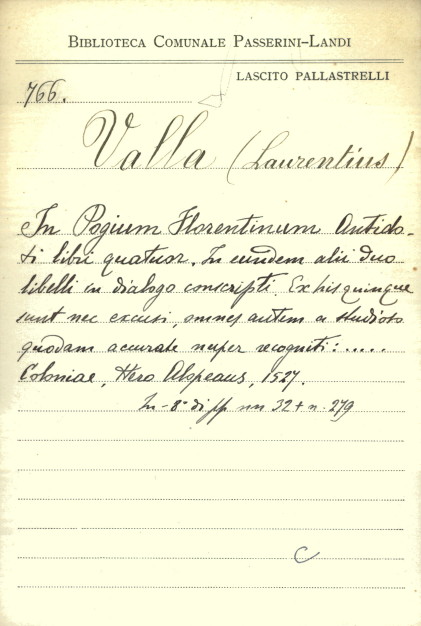 BIBLIOTECA COMUNALE PASSERINI-LANDI
LASCITO PALLASTRELLI
766.
Valla (Laurentius)
In Pogium Florentinum Antido-
ti libri quatuor. In eundem alii duo
libelli in dialogo conscripti. Ex his quinque
sunt nec excusi, omnes autem a studioso
quodam accurate nuper recogniti:.....
Coloniae, Hero Alopeaus, 1527.
In-8° di pp nn 32 + n. 279
C